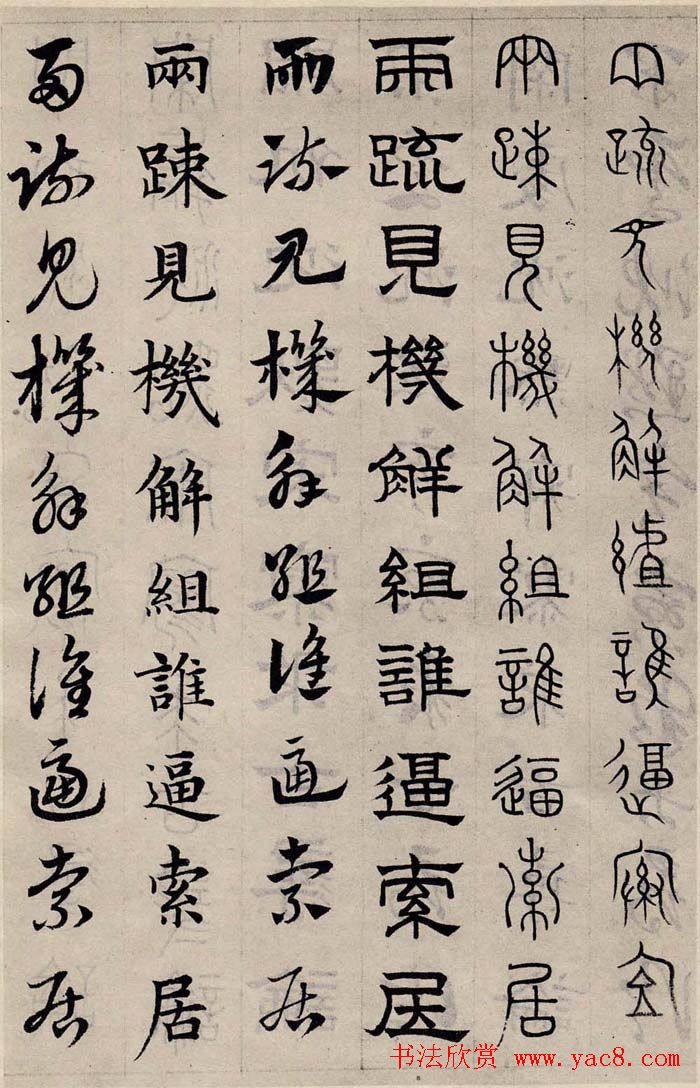 兩疏見機解組誰逼索居
兩疎見機解組誰逼索居
兩疏見機解組誰逼索居
兩疏見機解組誰逼索居
兩疎見機解組誰逼索居
兩疏見機解組誰逼索居
书法欣赏 www.yac8.com